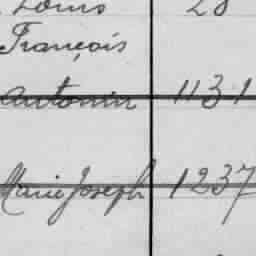 Louis 28
François
Antonin 1131
Marie Joseph 1237